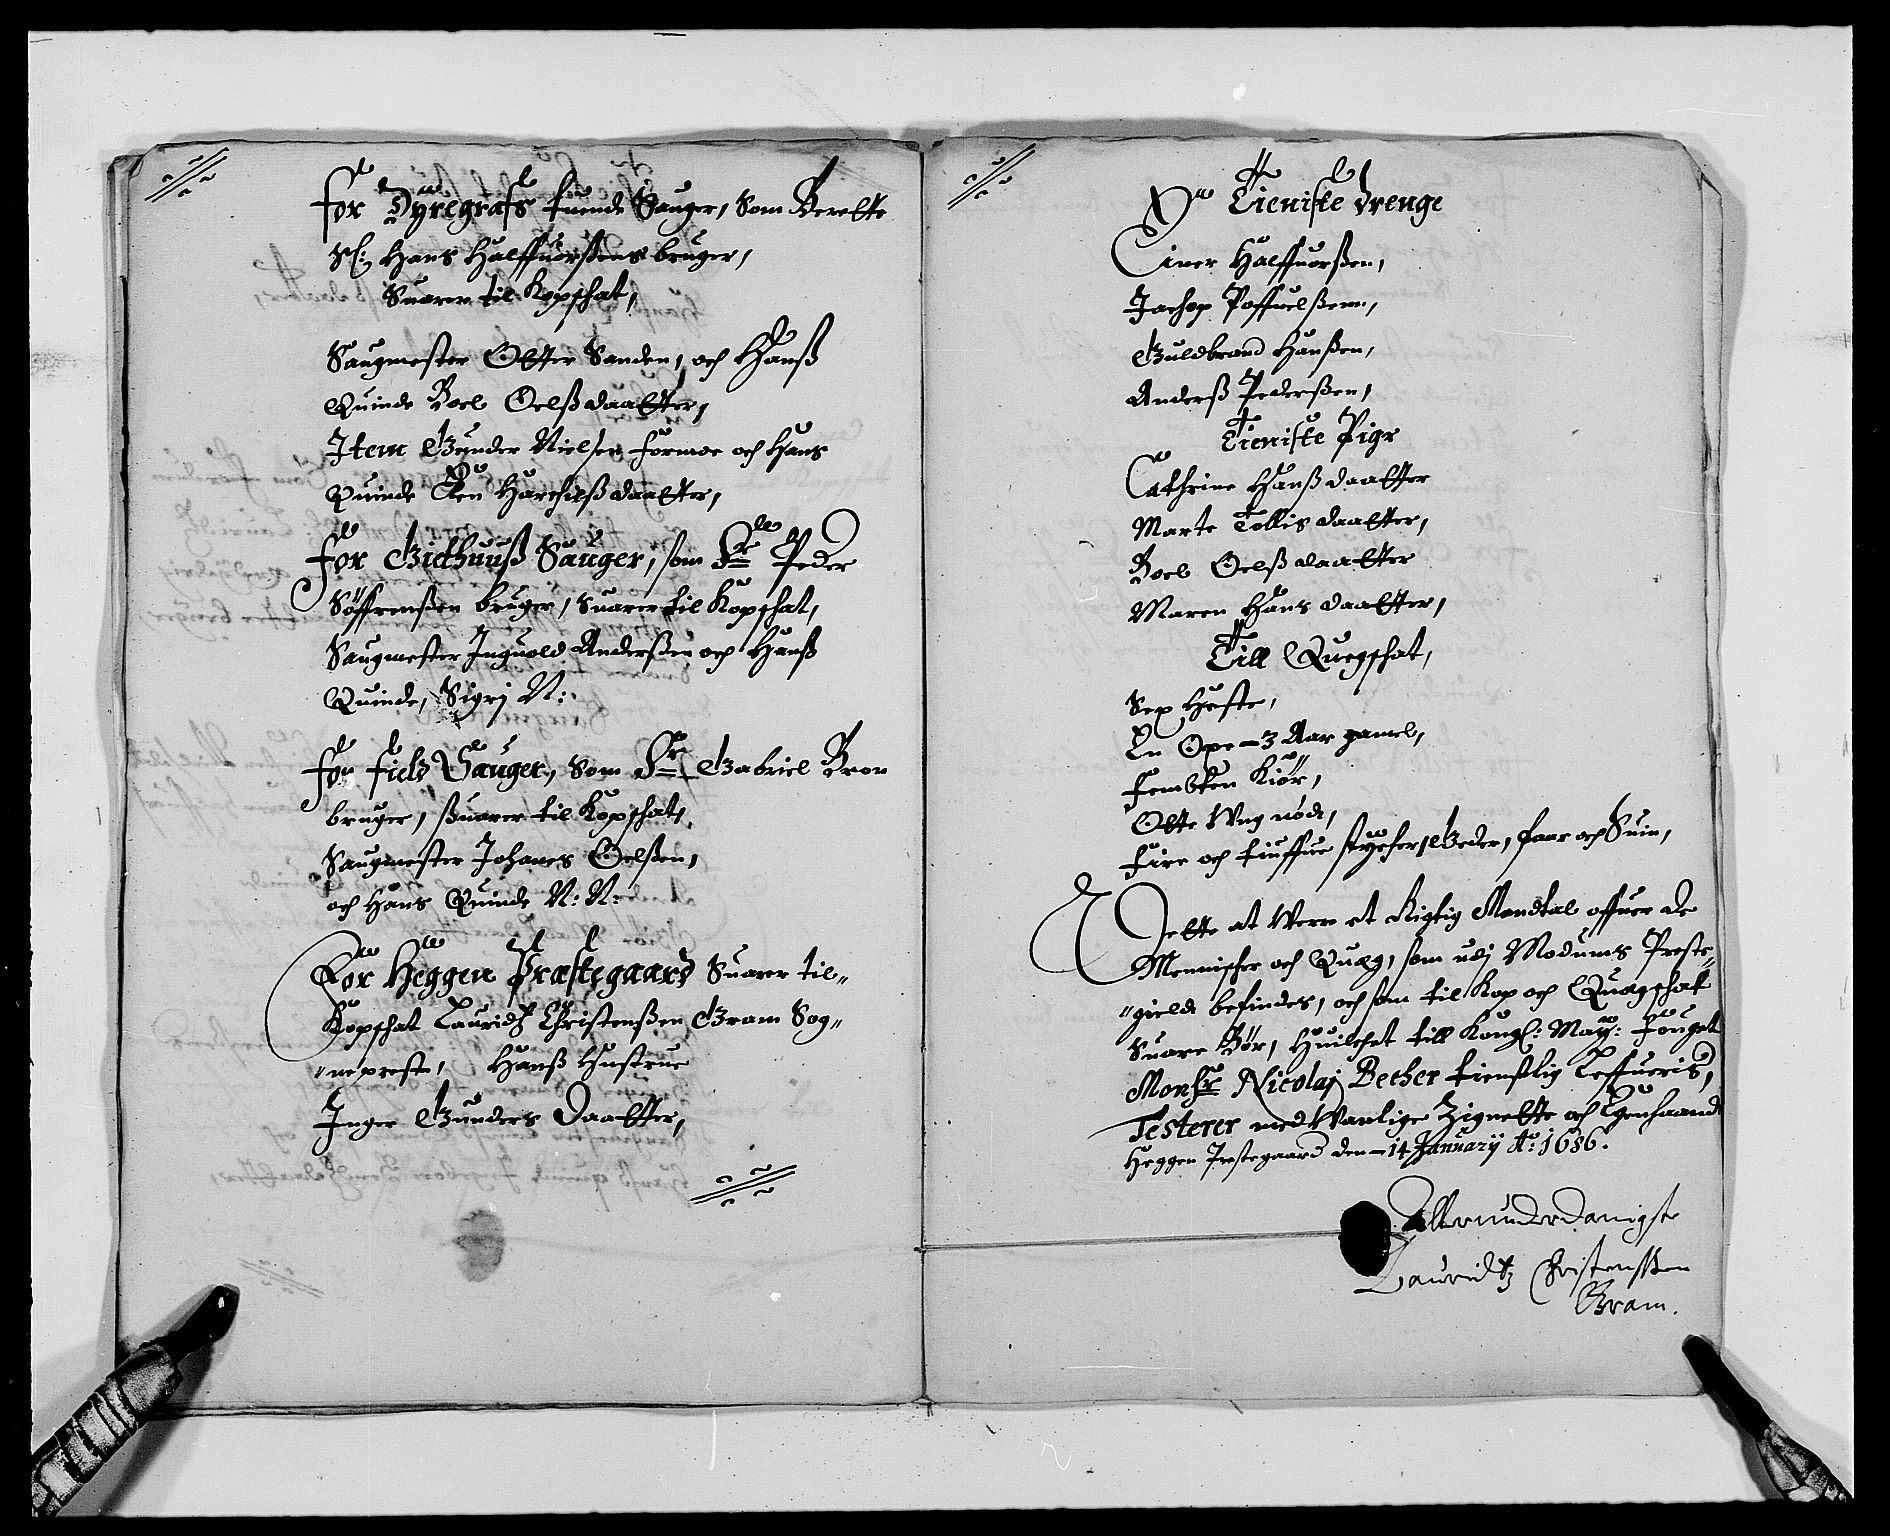 For Dyregrafs tuende Sauger, Som Berette
Sl: Hans Halffuorßens bruger,
Suarer til Kopschat,
Saugmester Otter Sanden, och Hanß
Quinde Boel Oelß daatter,
Item Gunder Nielsen Formoe och Hans
Quinde Harchilß daatter,
For Githuuß Sauger, som Sr Peder
Søffrenßen bruger, Suarer til Kopschat,
Saugmester Inguold Anderßen och Hanß
Quinde, Sigrj N:
For field Sauger, Som Sr Gabriel Bron
bruger, ßuarer til Kopschat,
Saugmester Johanes Oelßen,
och Hans Quinde N: N:
For Heggen Præstegaard Suarer til"
Kopschat Lauridtz Christenßen Gram Sog"
"nepreste, Hanß Hustrue
Inger Gunders Daatter,
Tieniste drenge
Einer Halffuorßen,
Jachop Poffuelßen,
Guldbrand Hanßen,
Anderß Pederßen,
Tieniste Piger
Cathrine Hanß daatter
Marte Tollis daatter,
Boel Oelß daatter
Maren Hans daatter,
Till Quegschat,
Sex Heste,
En Oxe - 3 Aar gamel,
Fembten Kiør,
Otte Ung nød,
Fire och tiuffue stycher, Geder, faar och Suin,
Dette at Were et Rigtig Mandtal offuer de
Mennischer och Quæg, som udj Modums Preste"
"gield befindes, och som til Kop och Quægschat
Suare Bør, Huilchet till Kongl: May: Fouget
Monsr Nicolaj Becher tienstlig Leffueris,
Testerer med Wanlige Zignette och Egenhaand
Heggen Prestegaard den - 14 Januarij Ao: 1686.
Allerunderdanigste
Lauridtz Christenssen
Gram.